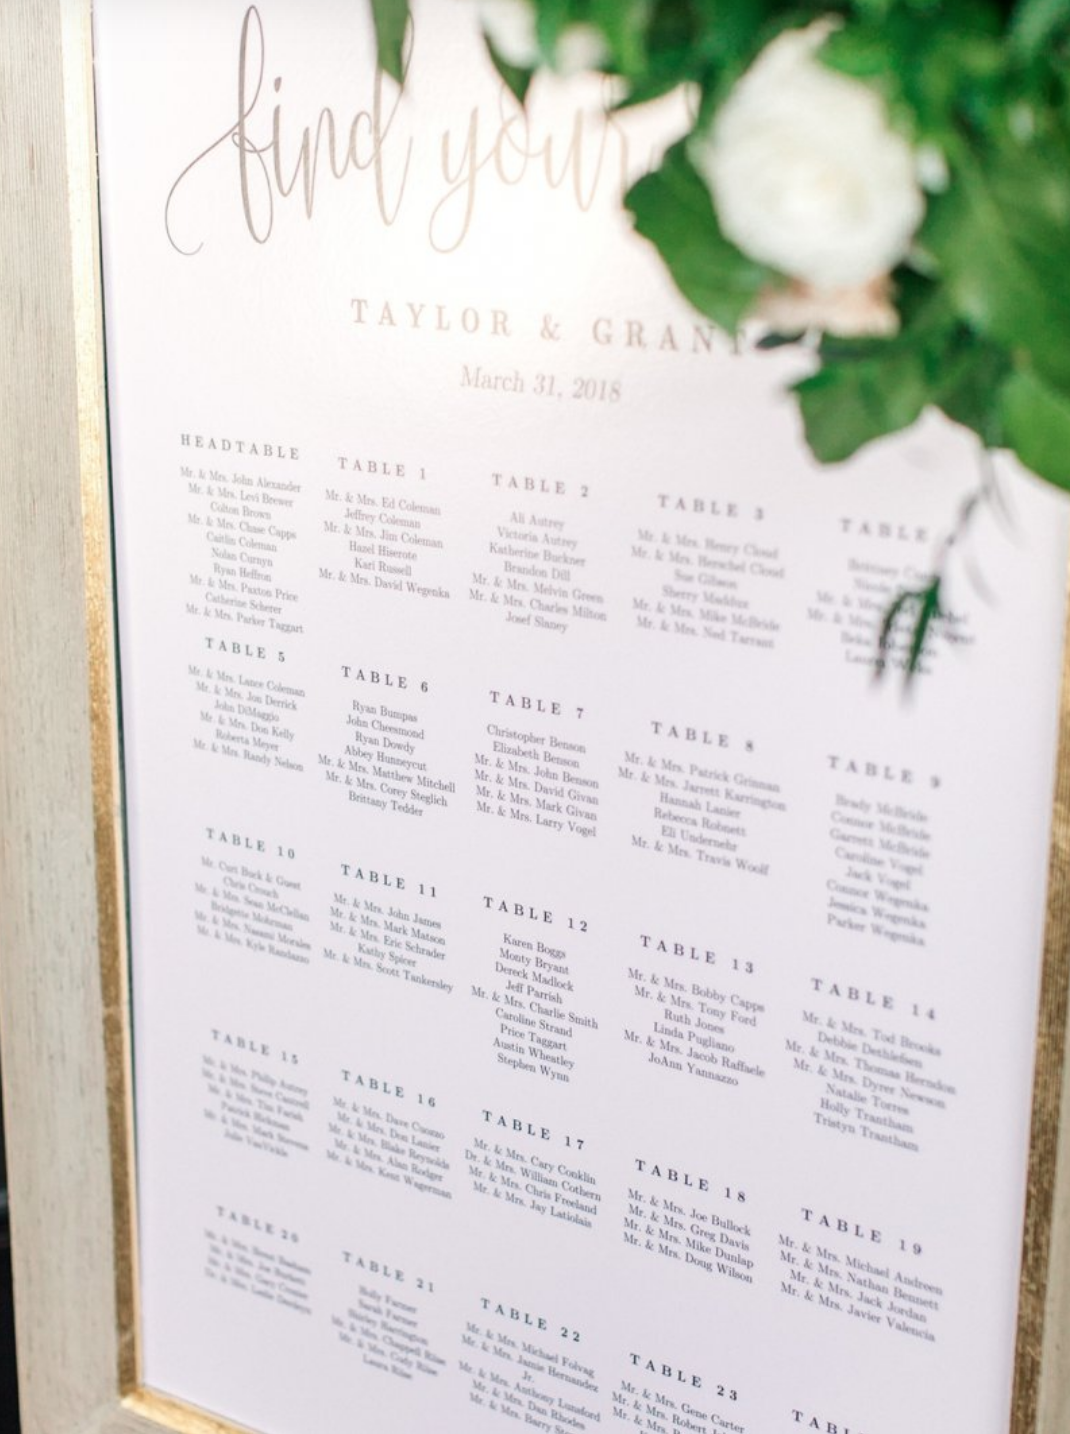 find your
TAYLOR & GRANT
March 31, 2018
HEADTABLE
Mr. & Mrs. John Alexander
Mr. & Mrs. Levi Brewer
Colton Brown
Mr. & Mrs. Chase Capps
Caitlin Coleman
Nolan Curnyn
Ryan Heffron
Mr. & Mrs. Paxton Price
Catherine Scherer
Mr. & Mrs. Parker Taggart
TABLE 1
Mr. & Mrs. Ed Coleman
Jeffrey Coleman
Mr. & Mrs. Jim Coleman
Hazel Hiserote
Kari Russell
Mr. & Mrs. David Wegenka
TABLE 2
Ali Autrey
Victoria Autrey
Katherine Buckner
Brandon Dill
Mr. & Mrs. Melvin Green
Mr. & Mrs. Charles Milton
Josef Slaney
TABLE 3
Mr. & Mrs. Henry Cloud
Mr. & Mrs. Herschel Cloud
Sue Gibson
Sherry Maddux
Mr. & Mrs. Mike McBride
Mr. & Mrs. Ned Tarrant
TABLE
Mr. &
Mr. & Mrs.
TABLE 5
Mr. & Mrs. Lance Coleman
Mr. & Mrs. Jon Derrick
John DiMaggio
Mr. & Mrs. Don Kelly
Roberta Meyer
Mr. & Mrs. Randy Nelson
TABLE 6
Ryan Bumpas
John Cheesmond
Ryan Dowdy
Abbey Hunneycut
Mr. & Mrs. Matthew Mitchell
Mr. & Mrs. Corey Steglich
Brittany Tedder
TABLE 7
Christopher Benson
Elizabeth Benson
Mr. & Mrs. John Benson
Mr. & Mrs. David Givan
Mr. & Mrs. Mark Givan
Mr. & Mrs. Larry Vogel
TABLE 8
Mr. & Mrs. Patrick Grinnan
Mr. & Mrs. Jarrett Karrington
Hannah Lanier
Rebecca Robnett
Eli Undernehr
Mr. & Mrs. Travis Woolf
TABLE 9
Brady McBride
Connor McBride
Garrett McBride
Caroline Vogel
Jack Vogel
Connor Wegenka
Jessica Wegenka
Parker Wegenka
TABLE 10
Mr. Curt Buck & Guest
Chris Crouch
Mr. & Mrs. Sean McClellan
Bridgette Mohrman
Mr. & Mrs. Nasami Morales
Mr. & Mrs. Kyle Randazzo
TABLE 11
Mr. & Mrs. John James
Mr. & Mrs. Mark Matson
Mr. & Mrs. Eric Schrader
Kathy Spicer
Mr. & Mrs. Scott Tankersley
TABLE 12
Karen Boggs
Monty Bryant
Dereck Madlock
Jeff Parrish
Mr. & Mrs. Charlie Smith
Caroline Strand
Price Taggart
Austin Wheatley
Stephen Wynn
TABLE 13
Mr. & Mrs. Bobby Capps
Mr. & Mrs. Tony Ford
Ruth Jones
Linda Pugliano
Mr. & Mrs. Jacob Raffaele
JoAnn Yannazzo
TABLE 14
Mr. & Mrs. Tod Brooks
Debbie Dethlefsen
Mr. & Mrs. Thomas Herndon
Mr. & Mrs. Dyrer Newson
Natalie Torres
Holly Trantham
Tristyn Trantham
TABLE 15
Mr. & Mrs. Philip Autrey
Mr. & Mrs. Steve Cantrell
Mr. & Mrs. Tim Farish
Patrick Hickman
Mr. & Mrs. Mark Stevens
Julie VanVickle
TABLE 16
Mr. & Mrs. Dave Cuozzo
Mr. & Mrs. Don Lanier
Mr. & Mrs. Blake Reynolds
Mr. & Mrs. Alan Rodger
Mr. & Mrs. Kent Wagerman
TABLE 17
Mr. & Mrs. Cary Conklin
Dr. & Mrs. William Cothern
Mr. & Mrs. Chris Freeland
Mr. & Mrs. Jay Latiolais
TABLE 18
Mr. & Mrs. Joe Bullock
Mr. & Mrs. Greg Davis
Mr. & Mrs. Mike Dunlap
Mr. & Mrs. Doug Wilson
TABLE 19
Mr. & Mrs. Michael Andreen
Mr. & Mrs. Nathan Bennett
Mr. & Mrs. Jack Jordan
Mr. & Mrs. Javier Valencia
TABLE 20
Mr. & Mrs.
Mr. & Mrs. Joe
Mr. & Mrs. Gary
Dr. & Mrs. Leslie
TABLE 21
Holly Farmer
Sarah Farmer
Shirley Harrington
Mr. & Mrs. Chappell Rise
Mr. & Mrs. Cody Rise
Laura Rise
TABLE 22
Mr. & Mrs. Michael Folvag
Mr. & Mrs. Jamie Hernandez
Jr.
Mr. & Mrs. Anthony Lunsford
Mr. & Mrs. Dan Rhodes
Mr. & Mrs. Barry
TABLE 23
Mr. & Mrs. Gene Carter
Mr. & Mrs. Robert
Mr. & Mrs.